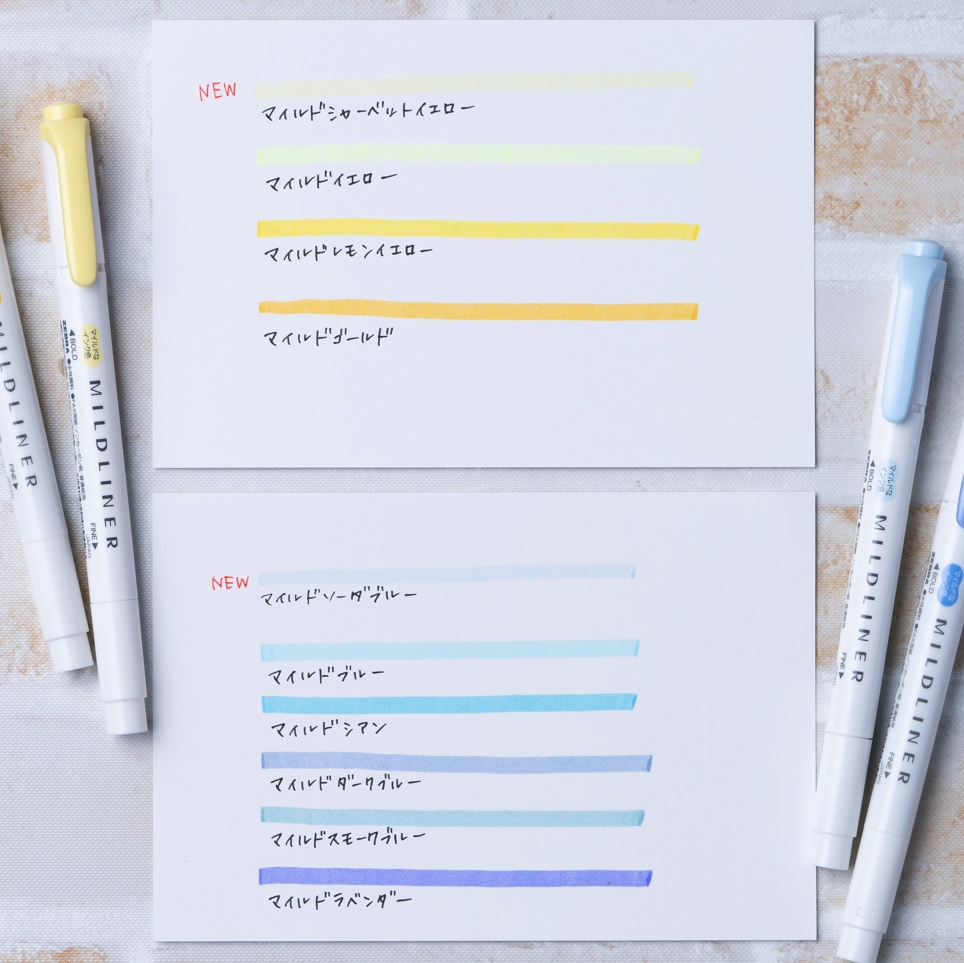 NEW
マイルドシャーベットイエロー
マイルドイエロー
マイルドレモンイエロー
マイルドゴールド
NEW
マイルドソーダブルー
マイルドブルー
マイルドシアン
マイルドダークブルー
マイルドスモークブルー
マイルドラベンダー
MILDLINER
FINE▶
マイルドな
インク色
◀BOLD
ZEBRA
MILDLINER
FINE▶
JAPAN
マイルドな
インク色
◀BOLD
ZEBRA
MILDLINER
FINE▶
◀BOLD
ZEBRA
MILDLINER
FINE▶
JAPAN